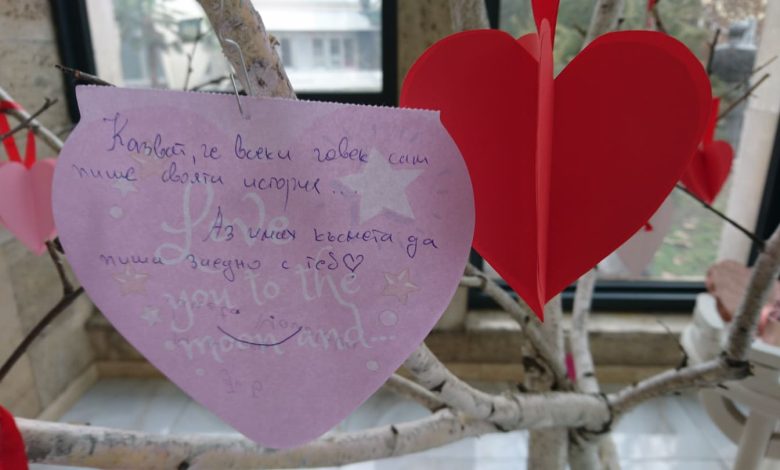 Казват, че всеки човек сам
пише своята история...
Аз имах късмета да
пиша заедно с теб♡
Love
you to the
moon and...